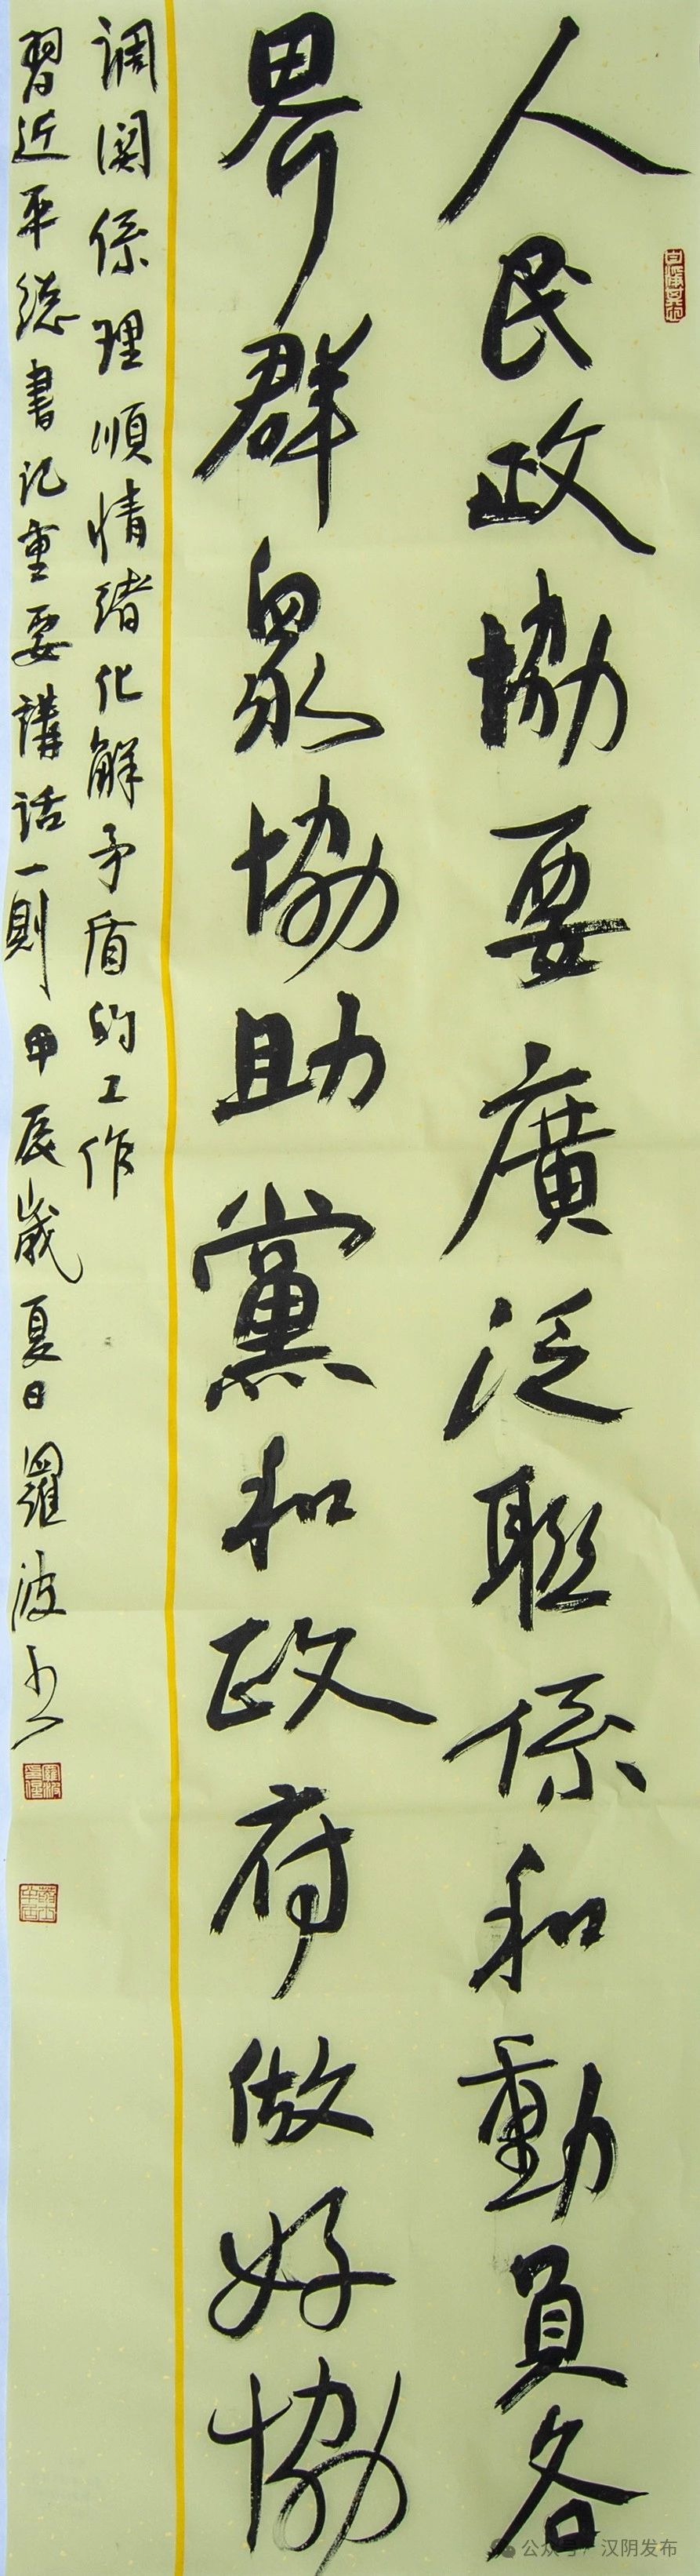 人民政協要廣泛聯係和動員各
界群衆協助黨和政府做好協
调関係理順情绪化解矛盾的工作
習近平總書记重要講话一則甲辰歲夏日羅波書
公众号 汉阴发布